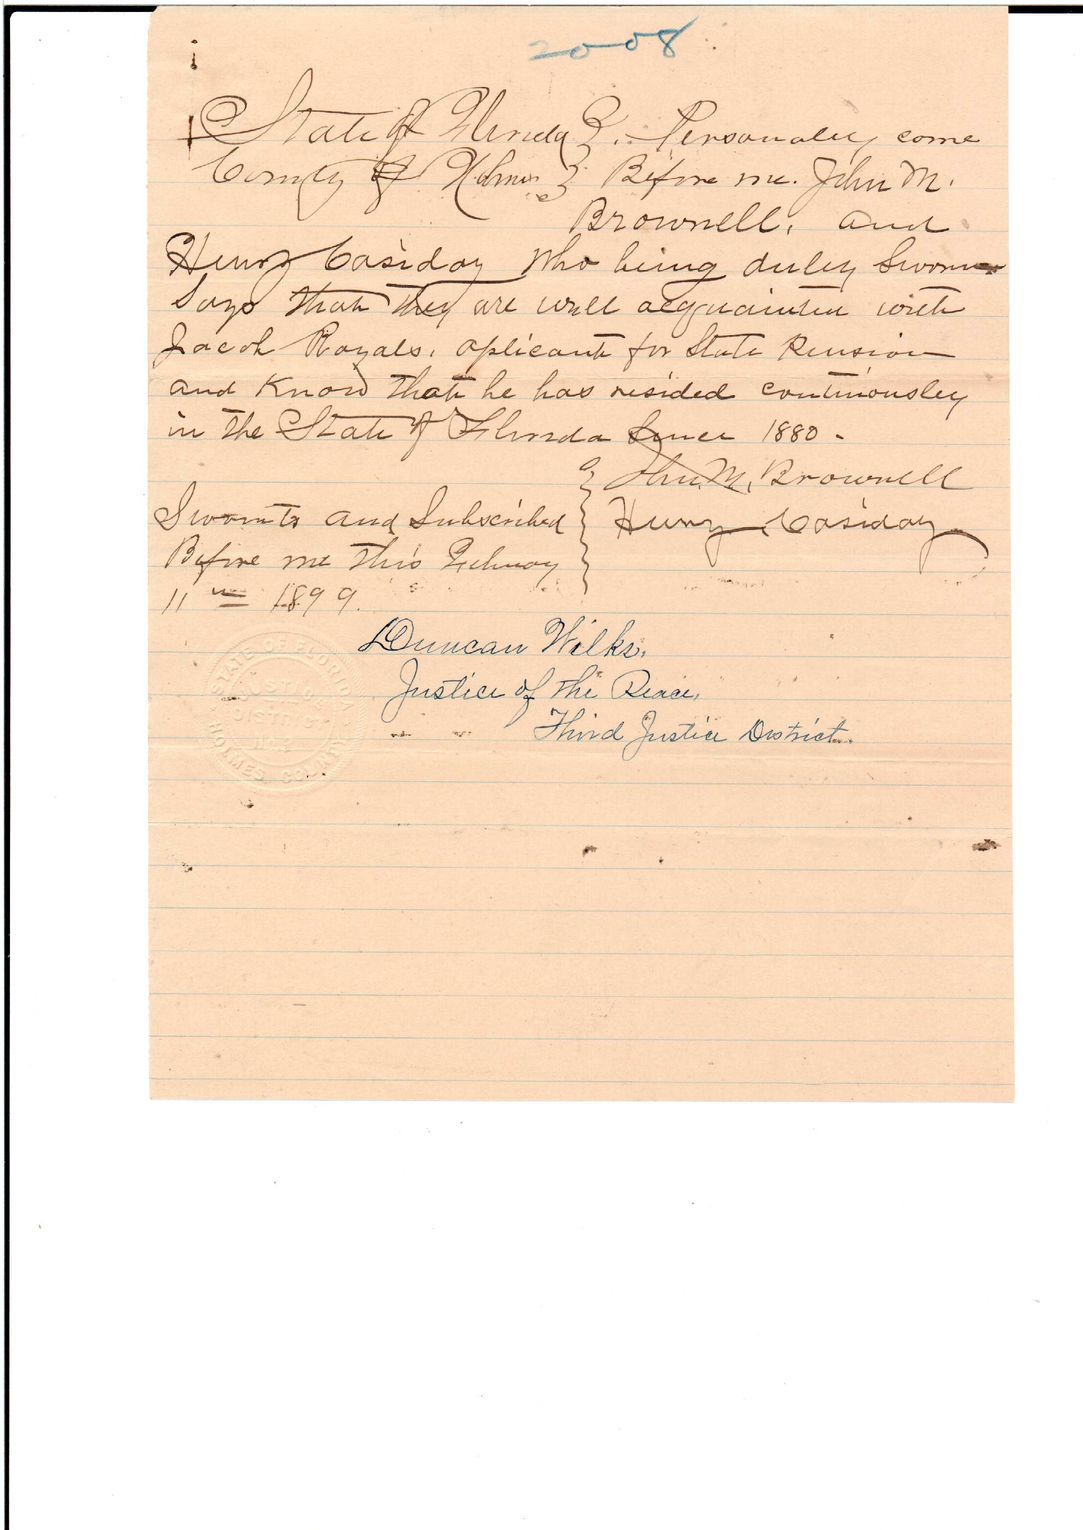 2008
State of Florida }. Personaley come
County of Holmes } Before me. John M.
Brownell, and
Henry Casiday Who being duley Sworn
Says that they are well acquainted with
Jacob Royals. aplicant for State Pension
and Know that he has resided continousley
in the State of Florida Since 1880.
John M. Brownell
Sworn to and Subscribed } Henry Casiday
Before me this Febuary
11th 1899.
Duncan Wilks.
Justice of the Peace.
Third Justice District.
STATE OF FLORIDA
JUSTICE
DISTRICT
HOLMES COUNTY